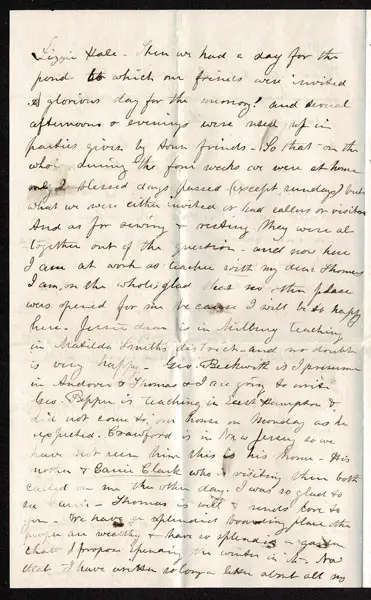 Lizzie Hale - Then we had a day for the
pond to which our friends were invited
A glorious day for the memory! and several
afternoons & evenings were used up in
parties given by our friends - So that on the
whole during the four weeks we were at home
only 2 blessed days passed (except sundays) but
what we were either invited or had callers or visitors
And as for sewing & resting they were al
together out of the question - and now here
I am at work as teacher with my dear Thomas
I am on the whole glad that no other place
was opened for me because I will be so happy
here. Jessie dear is in Millbury teaching
in Matilda Smiths district - and no doubt
is very happy - Geo. Beckwith is I presume
in Andover & Thomas & I are going to write
Geo. Pepper is teaching in East Hampton &
did not come to our house on Monday as he
expected. Crawford is in New Jersey so we
have not seen him this is his home - His
mother & Carrie Clark who is visiting them both
called on me the other day. I was so glad to
see Carrie - Thomas is well & sends love to
you - We have a splendid boarding place the
people are wealthy & have so splendid a garden
that I propose spending the winter in it - Now
that I have written so long a letter about all my